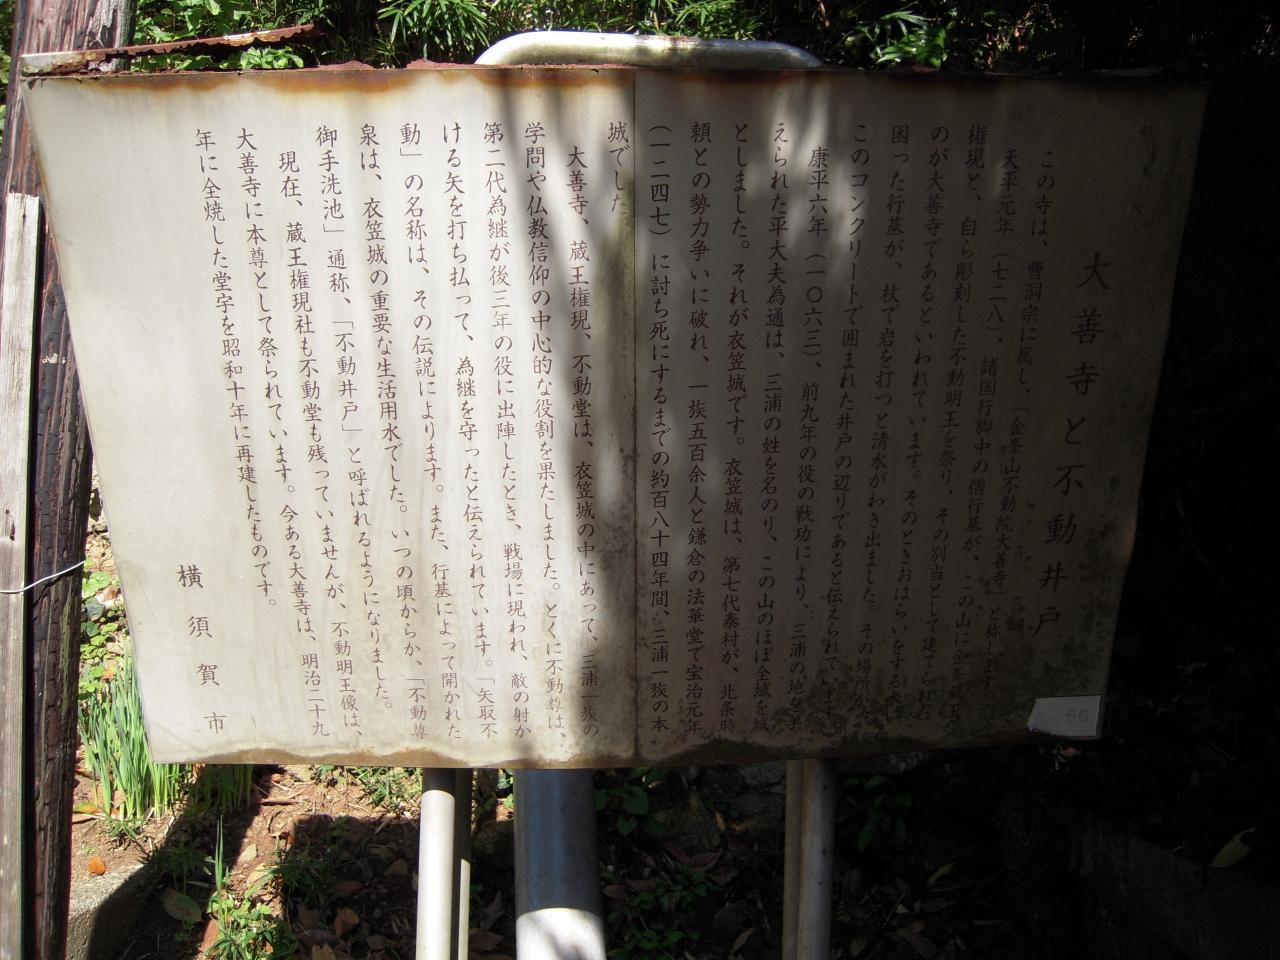 大善寺と不動井戸
この寺は、曹洞宗に属し、「金峯山不動院大善寺」と称します。
天平元年（七二八）、諸国行脚中の僧行基が、この山に金峯蔵王
権現と、自ら彫刻した不動明王を祭り、その別当として建てられた
のが大善寺であるといわれています。そのときおはらいをする水に
困った行基が、杖で岩を打つと清水がわき出ました。その場所が、
このコンクリートで囲まれた井戸の辺りであると伝えられています。
康平六年（一〇六三）、前九年の役の戦功により、三浦の地を与
えられた平大夫為通は、三浦の姓を名のり、この山のほぼ全域を城
としました。それが衣笠城です。衣笠城は、第七代泰村が、北条時
頼との勢力争いに破れ、一族五百余人と鎌倉の法華堂で宝治元年
（一二四七）に討ち死にするまでの約百八十四年間、三浦一族の本
城でした。
大善寺、蔵王権現、不動堂は、衣笠城の中にあって、三浦一族の
学問や仏教信仰の中心的な役割を果たしました。とくに不動尊は、
第二代為継が後三年の役に出陣したとき、戦場に現われ、敵の射か
ける矢を打ち払って、為継を守ったと伝えられています。「矢取不
動」の名称は、その伝説によります。また、行基によって開かれた
泉は、衣笠城の重要な生活用水でした。いつの頃からか、「不動尊
御手洗池」通称、「不動井戸」と呼ばれるようになりました。
現在、蔵王権現社も不動堂も残っていませんが、不動明王像は、
大善寺に本尊として祭られています。今ある大善寺は、明治二十九
年に全焼した堂宇を昭和十年に再建したものです。
横須賀市
56